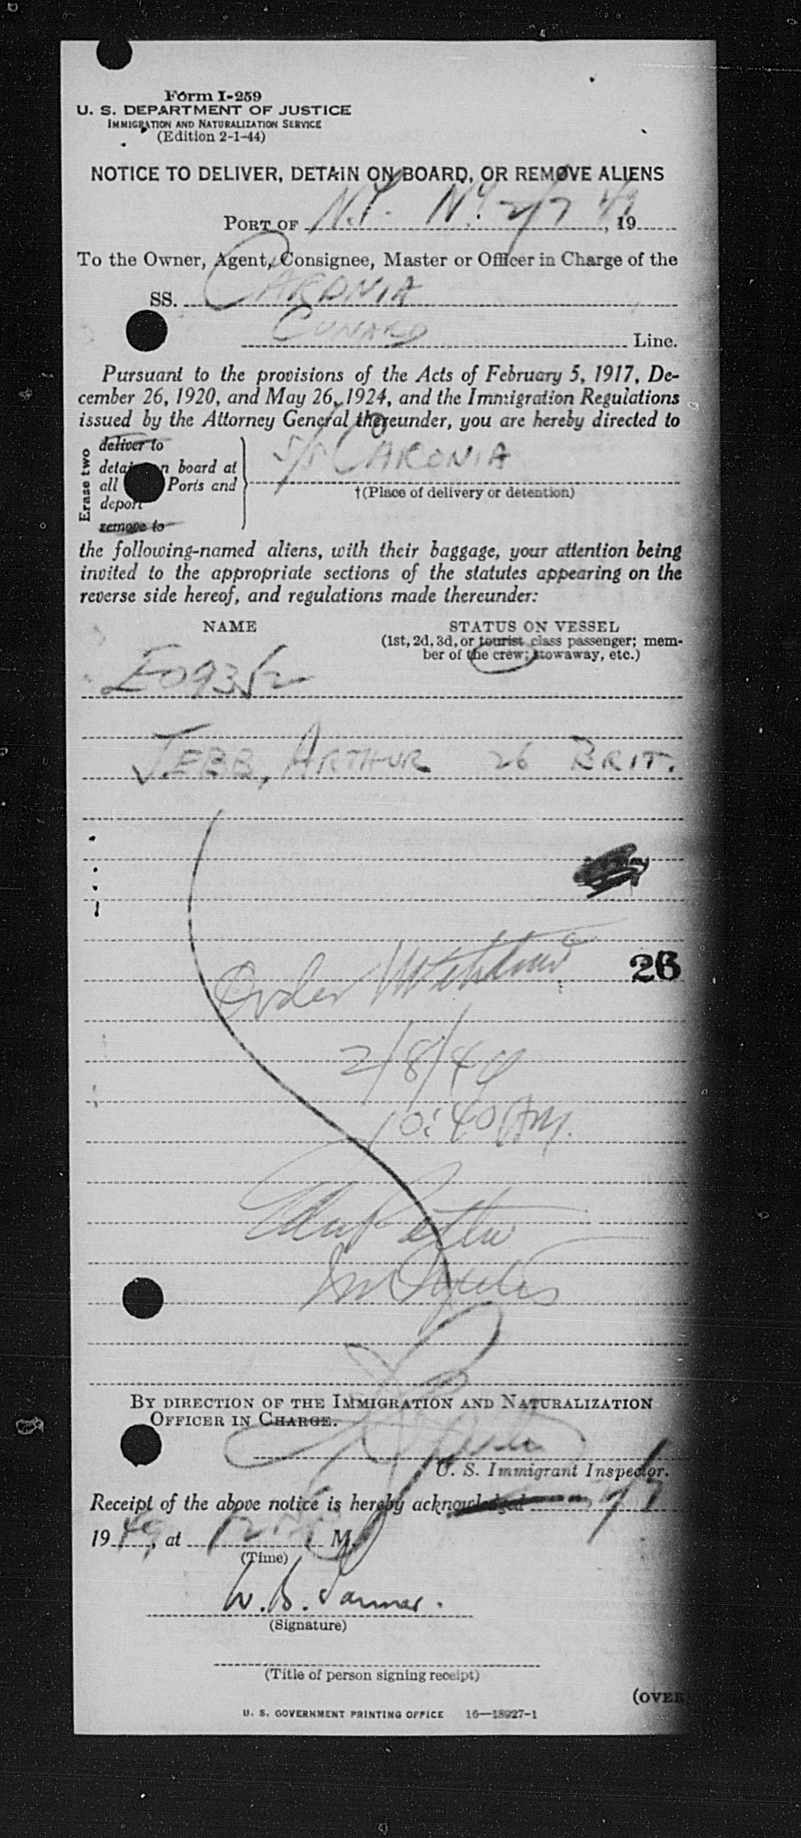 Form I-259
U. S. DEPARTMENT OF JUSTICE
IMMIGRATION AND NATURALIZATION SERVICE
(Edition 2-1-44)
NOTICE TO DELIVER, DETAIN ON BOARD, OR REMOVE ALIENS
PORT OF N.Y. N.Y. 2/7 49, 19
To the Owner, Agent, Consignee, Master or Officer in Charge of the
SS. CARONIA
CUNARD Line.
Pursuant to the provisions of the Acts of February 5, 1917, De-
cember 26, 1920, and May 26, 1924, and the Immigration Regulations
issued by the Attorney General thereunder, you are hereby directed to
Erase two
deliver to
detain on board at
all Ports and
deport
remove to
S/S CARONIA
†(Place of delivery or detention)
the following-named aliens, with their baggage, your attention being
invited to the appropriate sections of the statutes appearing on the
reverse side hereof, and regulations made thereunder:
NAME STATUS ON VESSEL
(1st, 2d, 3d, or tourist class passenger; mem-
ber of the crew; stowaway, etc.)
E09352
JEBB, ARTHUR 26 BRIT.
26
Order
2/8/49
10:40 AM.
BY DIRECTION OF THE IMMIGRATION AND NATURALIZATION
OFFICER IN CHARGE.
U. S. Immigrant Inspector.
Receipt of the above notice is hereby acknowledged 2/7
1949, at 12 M.
(Time)
W. B.
(Signature)
(Title of person signing receipt)
(OVER
U. S. GOVERNMENT PRINTING OFFICE 16—18927-1